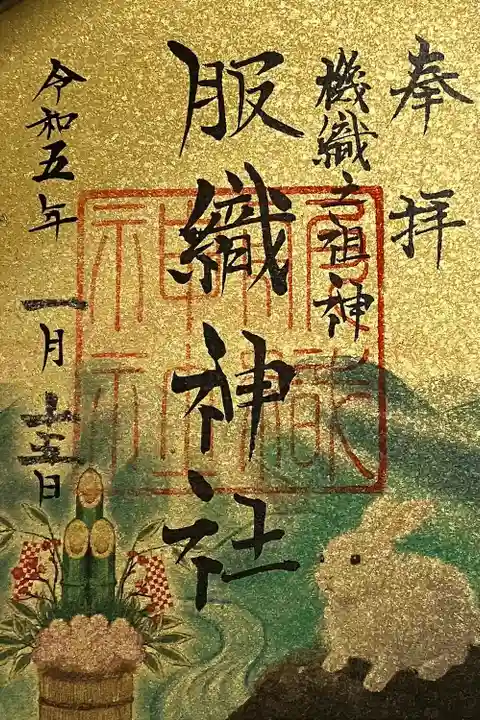 奉拝
機織之祖神
服織神社
令和五年 一月 十五日